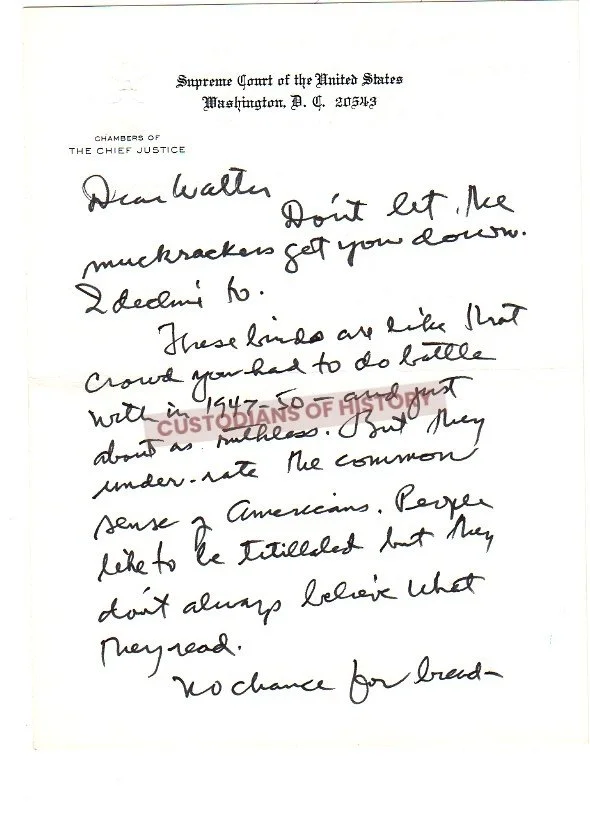 Supreme Court of the United States
Washington, D. C. 20543
CHAMBERS OF
THE CHIEF JUSTICE
Dear Walter
Don't let the
muckrackers get you down.
I decline to.
These birds are like that
crowd you had to do battle
with in 1947-50 - and just
CUSTODIANS OF HISTORY
about as ruthless. But they
under-rate the common
sense of Americans. People
like to be titillated but they
don't always believe what
they read.
No chance for bread-